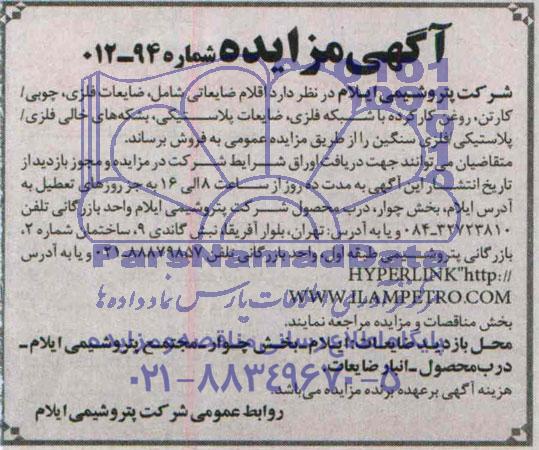 آگهی مزایده شماره ۹۴-۰۱۲
شرکت پتروشیمی ایلام در نظر دارد اقلام ضایعاتی شامل، ضایعات فلزی، چوبی/
کارتن، روغن کارکرده با شبکه فلزی، ضایعات پلاستیکی، بشکه‌های خالی فلزی/
پلاستیکی/فلزی سنگین را از طریق مزایده عمومی به فروش برساند.
متقاضیان می‌توانند جهت دریافت اوراق شرایط شرکت در مزایده و مجوز بازدید از
تاریخ انتشار این آگهی به مدت ده روز از ساعت ۸ الی ۱۶ به جز روزهای تعطیل به
آدرس ایلام، بخش چوار، درب محصول شرکت پتروشیمی ایلام واحد بازرگانی تلفن
۰۸۴-۳۲۷۲۳۸۱۰ و یا به آدرس: تهران، بلوار آفریقا، نبش گاندی ۹، ساختمان شماره ۲،
بازرگانی پتروشیمی طبقه اول، واحد بازرگانی تلفن ۰۲۱-۸۸۸۷۹۸۵۷ و یا به آدرس
HYPERLINK"http://
WWW.ILAMPETRO.COM
بخش مناقصات و مزایده مراجعه نمایند.
محل بازدید ضایعات: ایلام-بخش چوار-مجتمع پتروشیمی ایلام-
درب محصول-انبار ضایعات.
هزینه آگهی بر عهده برنده مزایده می‌باشد.
روابط عمومی شرکت پتروشیمی ایلام
ParsNamadData
پایگاه اطلاع رسانی مناقصه و مزایده
۰۲۱-۸۸۳۴۹۶۷۰-۵